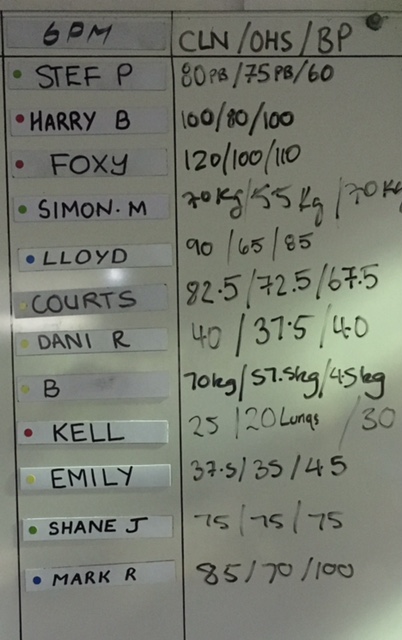 6PM CLN/OHS/BP
STEF P 80PB/75PB/60
HARRY B 100/80/100
FOXY 120/100/110
SIMON.M 70Kg/55Kg/70Kg
LLOYD 90/65/85
COURTS 82.5/72.5/67.5
DANI R 40/37.5/40
B 70kg/57.5kg/45kg
KELL 25/20Lungs/30
EMILY 37.5/35/45
SHANE J 75/75/75
MARK R 85/70/100